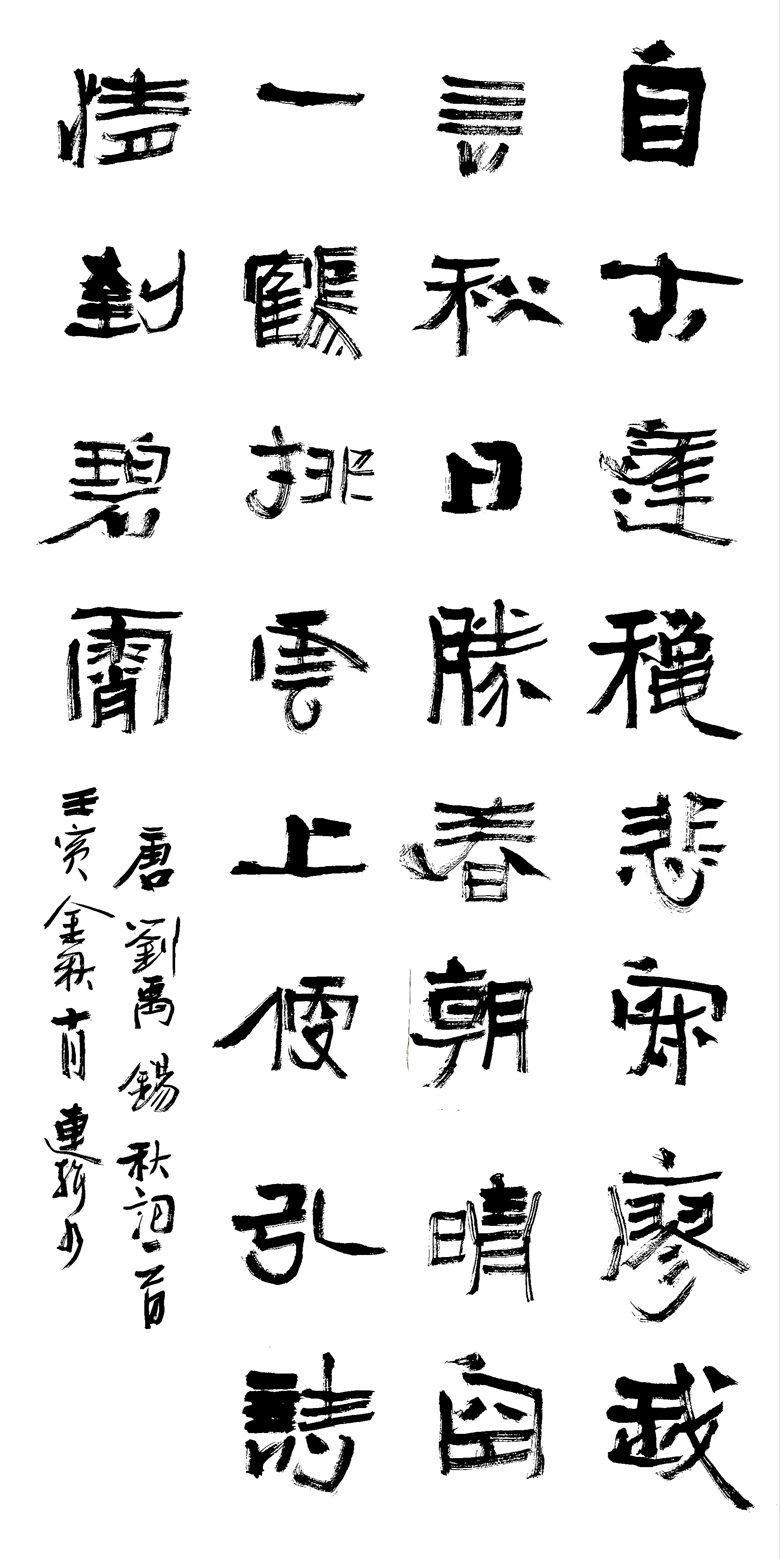 自古逢穐悲寂寥我
言秋日勝春朝晴空
一鶴排雲上便引詩
情到碧霄
唐劉禹錫秋詞一首
壬寅金秋十月連輯书